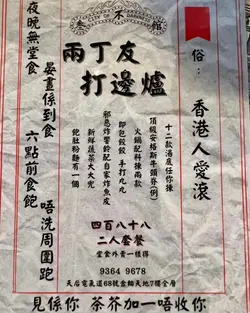 叁不館
CITY OF DARKNESS
兩丁友
打邊爐
俗:
香港人愛滾
夜晚無堂食
晏晝係到食
六點前食飽
唔洗周圍跑
十二款湯底任你揀
頂級安格斯牛頸脊(例)
火鍋配料揀兩款
即包餃餃 手打丸丸
邪惡炸響鈴配自家炸魚皮
新鮮蔬菜大大兜
飽肚粉麵有一個
四百八十八
二人套餐
堂食外賣一樣得
9364 9678
天后電氣道68號金軸天地7樓全層
見係你 茶芥加一唔收你